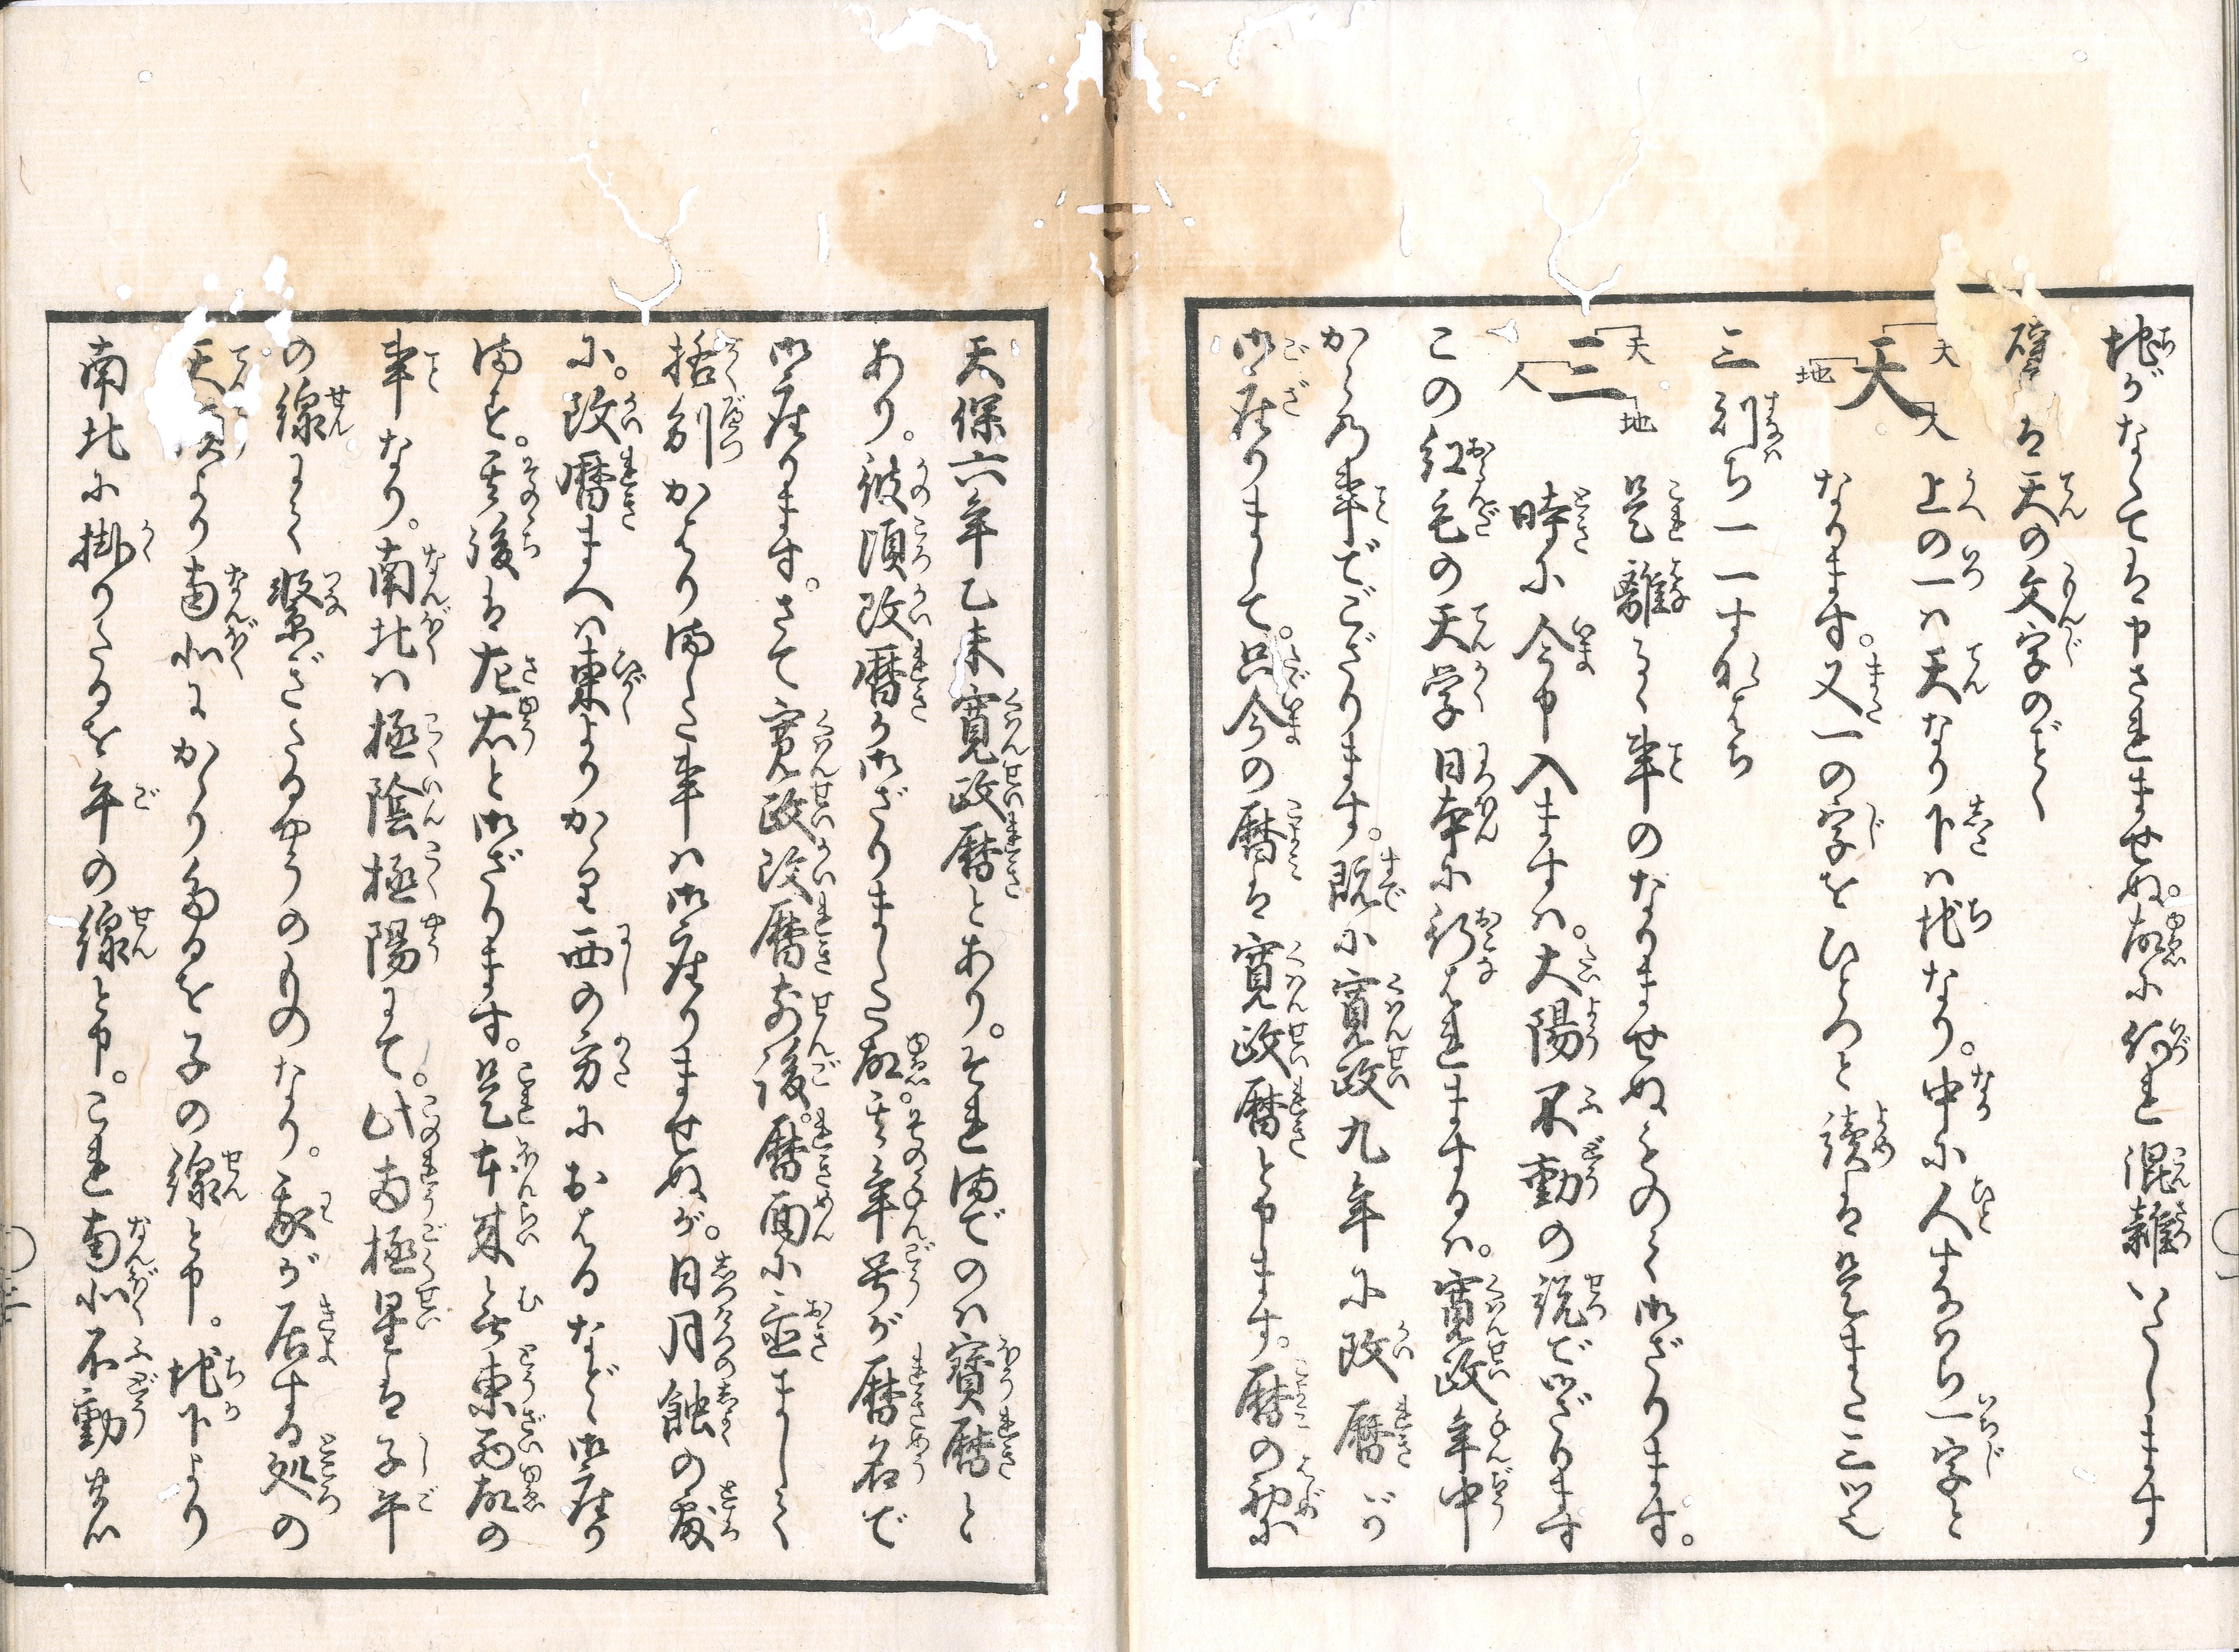 地がなくては申されませぬ。故に何れ混雑いたします
譬は天の文字のごとく
天 天 地 人 上の一ハ天なり下ハ地なり。中に人すなハち一字と
なります。又一の字をひとつと読は是また三ツと
三則ち一一一すなはち
三 天 地 人 是離るゝ事のなりませぬものと御ざります。
時に今申入ますハ。大陽不動の説で御ざります
この紅毛の天学日本に行はれまするハ。寛政年中
からの事でござります。既に寛政九年に改暦が
御座りまして。只今の暦は寛政暦と申ます。暦の初に
天保六年乙未寛政暦とあり。それ迄のハ寶暦と
あり。彼頃改暦が御ざりました故。其年号が暦名で
御座ります。さて寛政改暦前後。暦面に並ましく
格別かはり満した事ハ御座りませぬが。日月蝕の處
に。改暦まへハ東よりかけ西の方におはるなどゝ御座り
満を。其後は左右と御ざります。是本来無東西故の
事なり。南北ハ極陰極陽にて。此南極星は子午
の線にて繋ざたるやうのものなり。我が居する処の
天頂より南北にかゝりたるを子の線と申。地下より
南北に掛りたるを午の線と申。これ南北不動なり